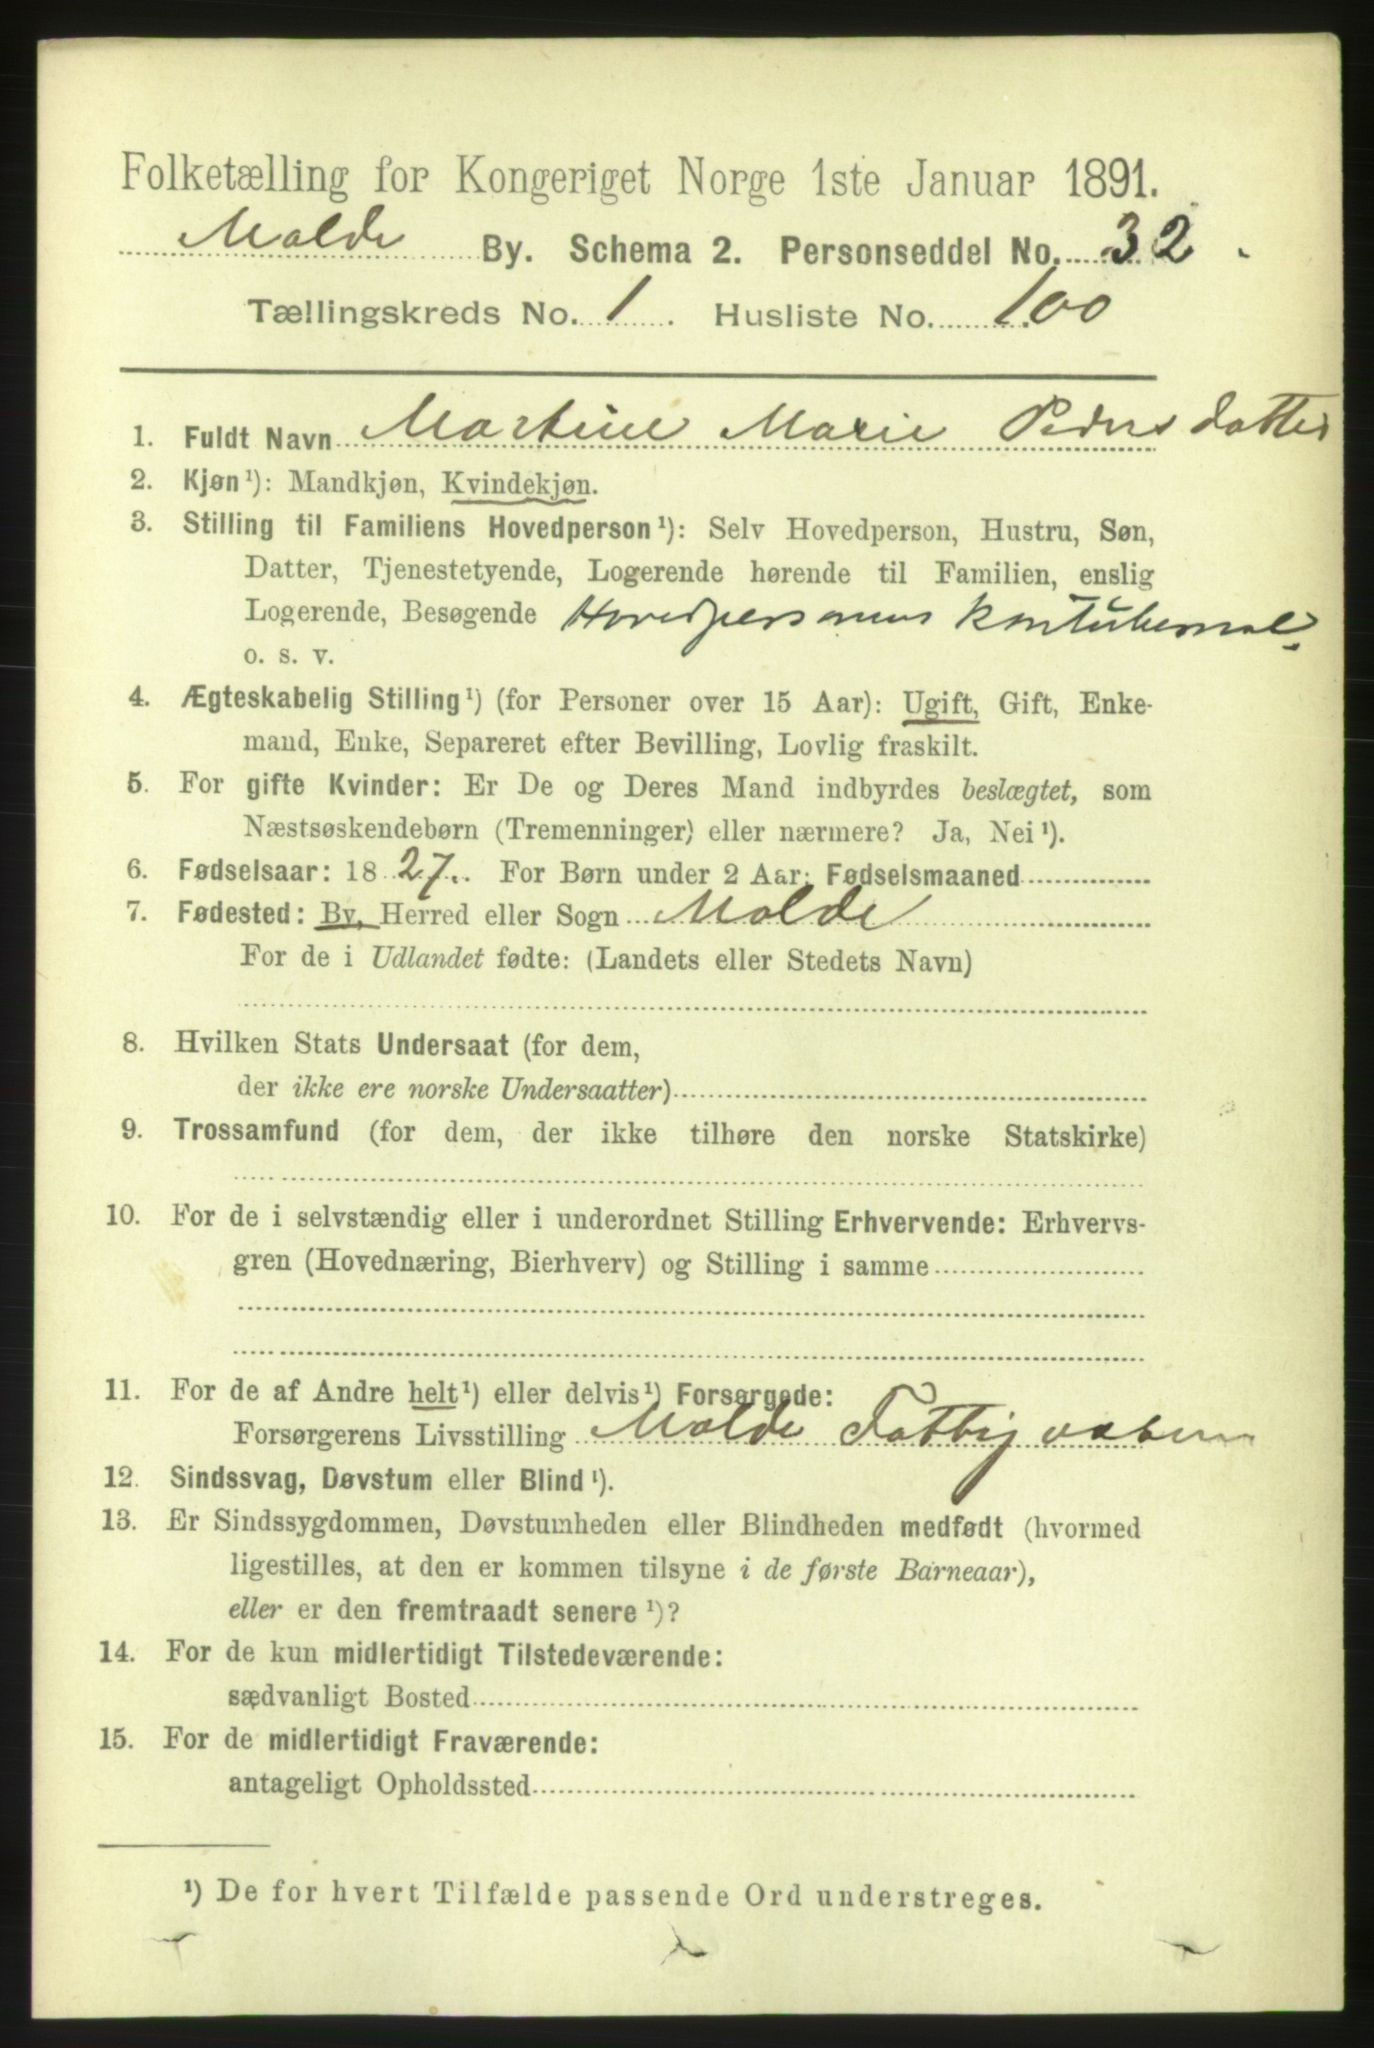 Folketælling for Kongeriget Norge 1ste Januar 1891.
Molde By. Schema 2. Personseddel No. 32.
Tællingskreds No. 1. Husliste No. 100
1. Fuldt Navn Martine Marie Pedersdatter
2. Kjøn ¹): Mandkjøn, Kvindekjøn.
3. Stilling til Familiens Hovedperson ¹): Selv Hovedperson, Hustru, Søn,
Datter, Tjenestetyende, Logerende hørende til Familien, enslig
Logerende, Besøgende Hovedpersonens Kontubernal
o. s. v.
4. Ægteskabelig Stilling ¹) (for Personer over 15 Aar): Ugift, Gift, Enke-
mand, Enke, Separeret efter Bevilling, Lovlig fraskilt.
5. For gifte Kvinder: Er De og Deres Mand indbyrdes beslægtet, som
Næstsøskendebørn (Tremenninger) eller nærmere? Ja, Nei ¹).
6. Fødselsaar: 1827. For Børn under 2 Aar: Fødselsmaaned
7. Fødested: By, Herred eller Sogn Molde
For de i Udlandet fødte: (Landets eller Stedets Navn)
8. Hvilken Stats Undersaat (for dem,
der ikke ere norske Undersaatter)
9. Trossamfund (for dem, der ikke tilhøre den norske Statskirke)
10. For de i selvstændig eller i underordnet Stilling Erhvervende: Erhvervs-
gren (Hovednæring, Bierhverv) og Stilling i samme
11. For de af Andre helt ¹) eller delvis ¹) Forsørgede:
Forsørgerens Livsstilling Molde Fattigvæsen
12. Sindssvag, Døvstum eller Blind ¹).
13. Er Sindssygdommen, Døvstumheden eller Blindheden medfødt (hvormed
ligestilles, at den er kommen tilsyne i de første Barneaar),
eller er den fremtraadt senere ¹)?
14. For de kun midlertidigt Tilstedeværende:
sædvanligt Bosted
15. For de midlertidigt Fraværende:
antageligt Opholdssted
¹) De for hvert Tilfælde passende Ord understreges.